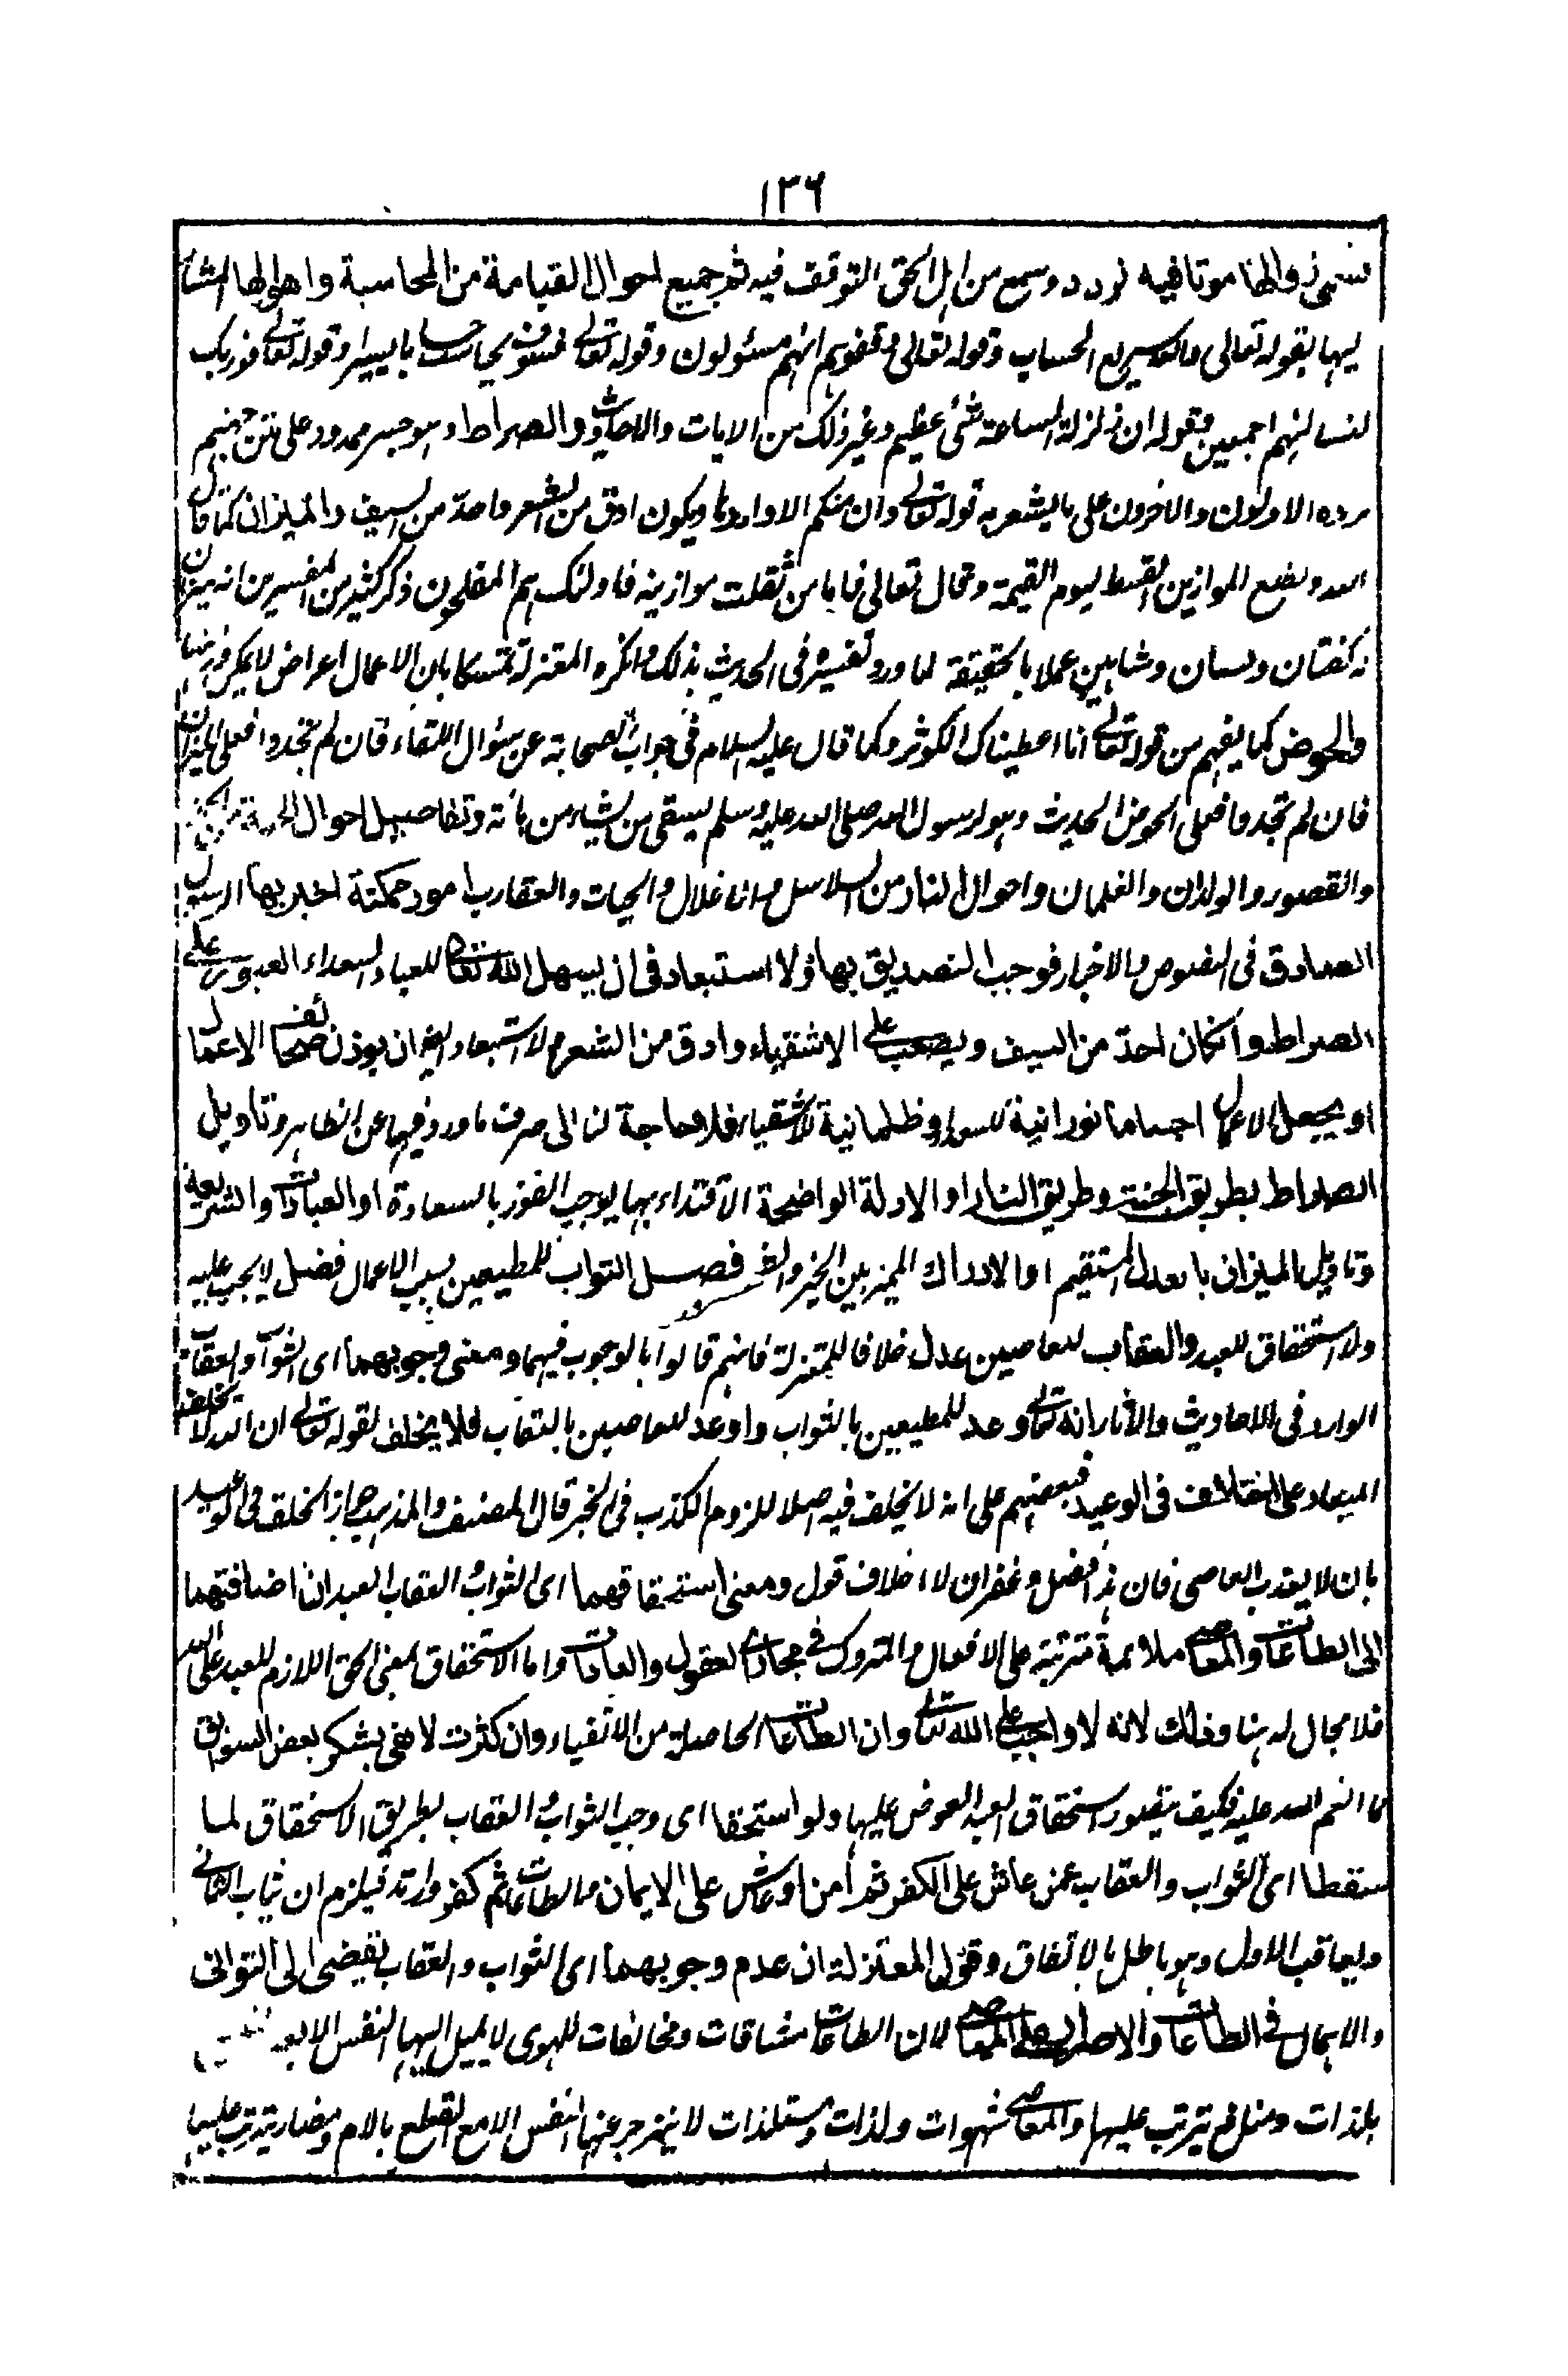 ١٣٦
فيه تردد وسمع من اهل الحق التوقف فيه ثم جميع احوال القيامة من المحاسبة واهوالها المشا
ليها بقوله تعالى والله سريع الحساب وقوله تعالى وقفوهم انهم مسئولون وقوله تعالى فسوف يحاسب حسابا يسيرا وقوله تعالى فوربك
لنسالنهم اجمعين وقوله ان زلزلة الساعة شئ عظيم وغير ذلك من الايات والاحاديث والصراط وهو جسر ممدود على متن جهنم
يرده الاولون والاخرون على ما يشعر به قوله تعالى وان منكم الا واردها ويكون ادق من الشعر واحدّ من السيف والميزان كما قال
الله ونضع الموازين القسط ليوم القيمة وقال تعالى فاما من ثقلت موازينه فاولئك هم المفلحون ذكر كثير من المفسرين انه ميزان
له كفتان ولسان وشاهين عملا بالحقيقة لما ورد تفسيره فى الحديث بذلك وانكره المعتزلة تمسكا بان الاعمال اعراض لا يمكن وزنها
والحوض كما يفهم من قوله تعالى انا اعطيناك الكوثر وكما قال عليه السلام فى جواب الصحابة عن سؤال اللقاء فان لم تجدوا فعلى الميزان
فان لم تجدوا فعلى الحوض الحديث وهو لرسول الله صلى الله عليه وسلم يسقى من يشاء من مائه وتفاصيل احوال الجنة من
والقصور والولدان والغلمان واحوال النار من السلاسل والاغلال والحيات والعقارب امور ممكنة اخبر بها الرسول
الصادق فى النصوص والاخبار فوجب التصديق بها ولا استبعاد فى ان يسهل الله تعالى للعباد السعداء العبور على
الصراط وانكان احدّ من السيف ويصعب على الاشقياء وادق من الشعر ولا استبعاد ايضا ان يوزن صحائف الاعمال
او يجعل الاعمال اجساما نورانية للسعداء وظلمانية للاشقياء فلا حاجة لنا الى صرف ما ورد فيهما عن الظاهر وتاويل
الصراط بطريق الجنة وطريق النار او الادلة الواضحة الاقتداء بها يوجب الفوز بالسعادة او العبادات والشريعة
وتاويل الميزان بالعدل المستقيم او الادراك المميز بين الخير والشر فصل الثواب للمطيعين بسبب الاعمال فضل لا يجب عليه
ولا استحقاق للعبد والعقاب للعاصين عدل خلافا للمعتزلة فانهم قالوا بالوجوب فيهما ومعنى وجوبهما اى الثواب والعقاب
الوارد فى الاحاديث والآثار انه تعالى وعد للمطيعين بالثواب واوعد للعاصين بالعقاب فلا يتخلف لقوله تعالى ان الله لا يخلف
الميعاد على اختلاف فى الوعيد فبعضهم على انه لا يخلف فيه اصلا للزوم الكذب فى الخبر قال المصنف والمذهب جواز الخلف فى الوعيد
بان لا يعذب العاصى فان هذا فضل وغفران لا اخلاف قول ومعنى استحقاقهما اى الثواب والعقاب العبد ان اضافتهما
الى الطاعات والمعاصى ملائمة مترتبة على الافعال والتروك فى مجارى العقول والعادات واما الاستحقاق بمعنى الحق اللازم للعبد على الله
فلا مجال له هنا وذلك لانه لا واجب على الله تعالى وان الطاعات الحاصلة من الاتقياء وان كثرت لا تفى بشكر بعض السوابق
مما انعم الله عليه فكيف يتصور استحقاق العبد العوض عليها ولو استحقا اى وجب الثواب والعقاب بطريق الاستحقاق لما
سقطا اى الثواب والعقاب عمن عاش على الكفر ثم آمن او عاش على الايمان والطاعات ثم كفر وارتد فيلزم ان يثاب الثانى
ويعاقب الاول وهو باطل بالاتفاق وقول المعتزلة ان عدم وجوبهما اى الثواب والعقاب يفضى الى التوانى
والاهمال فى الطاعات والاصرار على المعاصى لان الطاعات مشاقات ومخالفات للهوى لا يميل اليها النفس الا بعد
بلذات ومنافع يترتب عليها والمعاصى شهوات ولذات ومستلذات لا ينزجر عنها النفس الا مع القطع بالام ومضار يترتب عليها